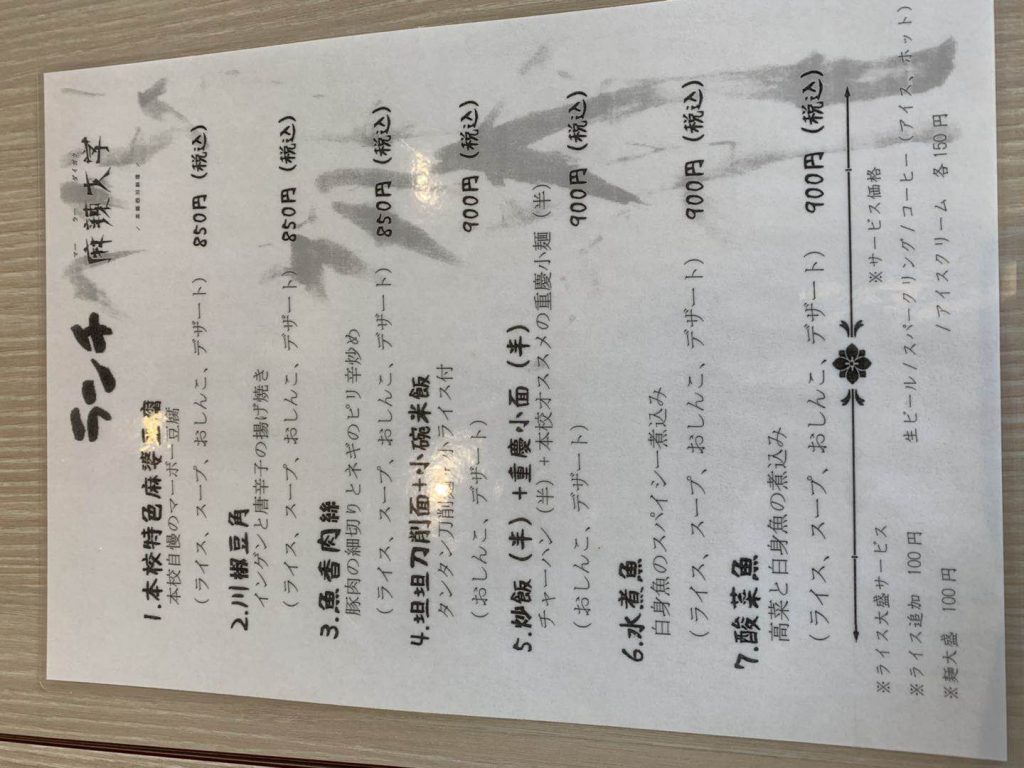 ランチ
マー ラー ダイガク
麻辣大学
1.本校特色麻婆豆腐
本校自慢のマーボー豆腐
(ライス、スープ、おしんこ、デザート) 850円(税込)
2.川椒豆角
インゲンと唐辛子の揚げ焼き
(ライス、スープ、おしんこ、デザート) 850円(税込)
3.魚香肉絲
豚肉の細切りとネギのピリ辛炒め
(ライス、スープ、おしんこ、デザート) 850円(税込)
4.坦坦刀削面+小碗米飯
タンタン刀削麺+小ライス付
(おしんこ、デザート) 900円(税込)
5.炒飯(半)+重慶小面(半)
チャーハン(半)+本校オススメの重慶小麺(半)
(おしんこ、デザート) 900円(税込)
6.水煮魚
白身魚のスパイシー煮込み
(ライス、スープ、おしんこ、デザート) 900円(税込)
7.酸菜魚
高菜と白身魚の煮込み
(ライス、スープ、おしんこ、デザート) 900円(税込)
※ライス大盛サービス ※サービス価格
※ライス追加 100円 生ビール/スパークリング/コーヒー(アイス、ホット)
※麺大盛 100円 /アイスクリーム 各150円